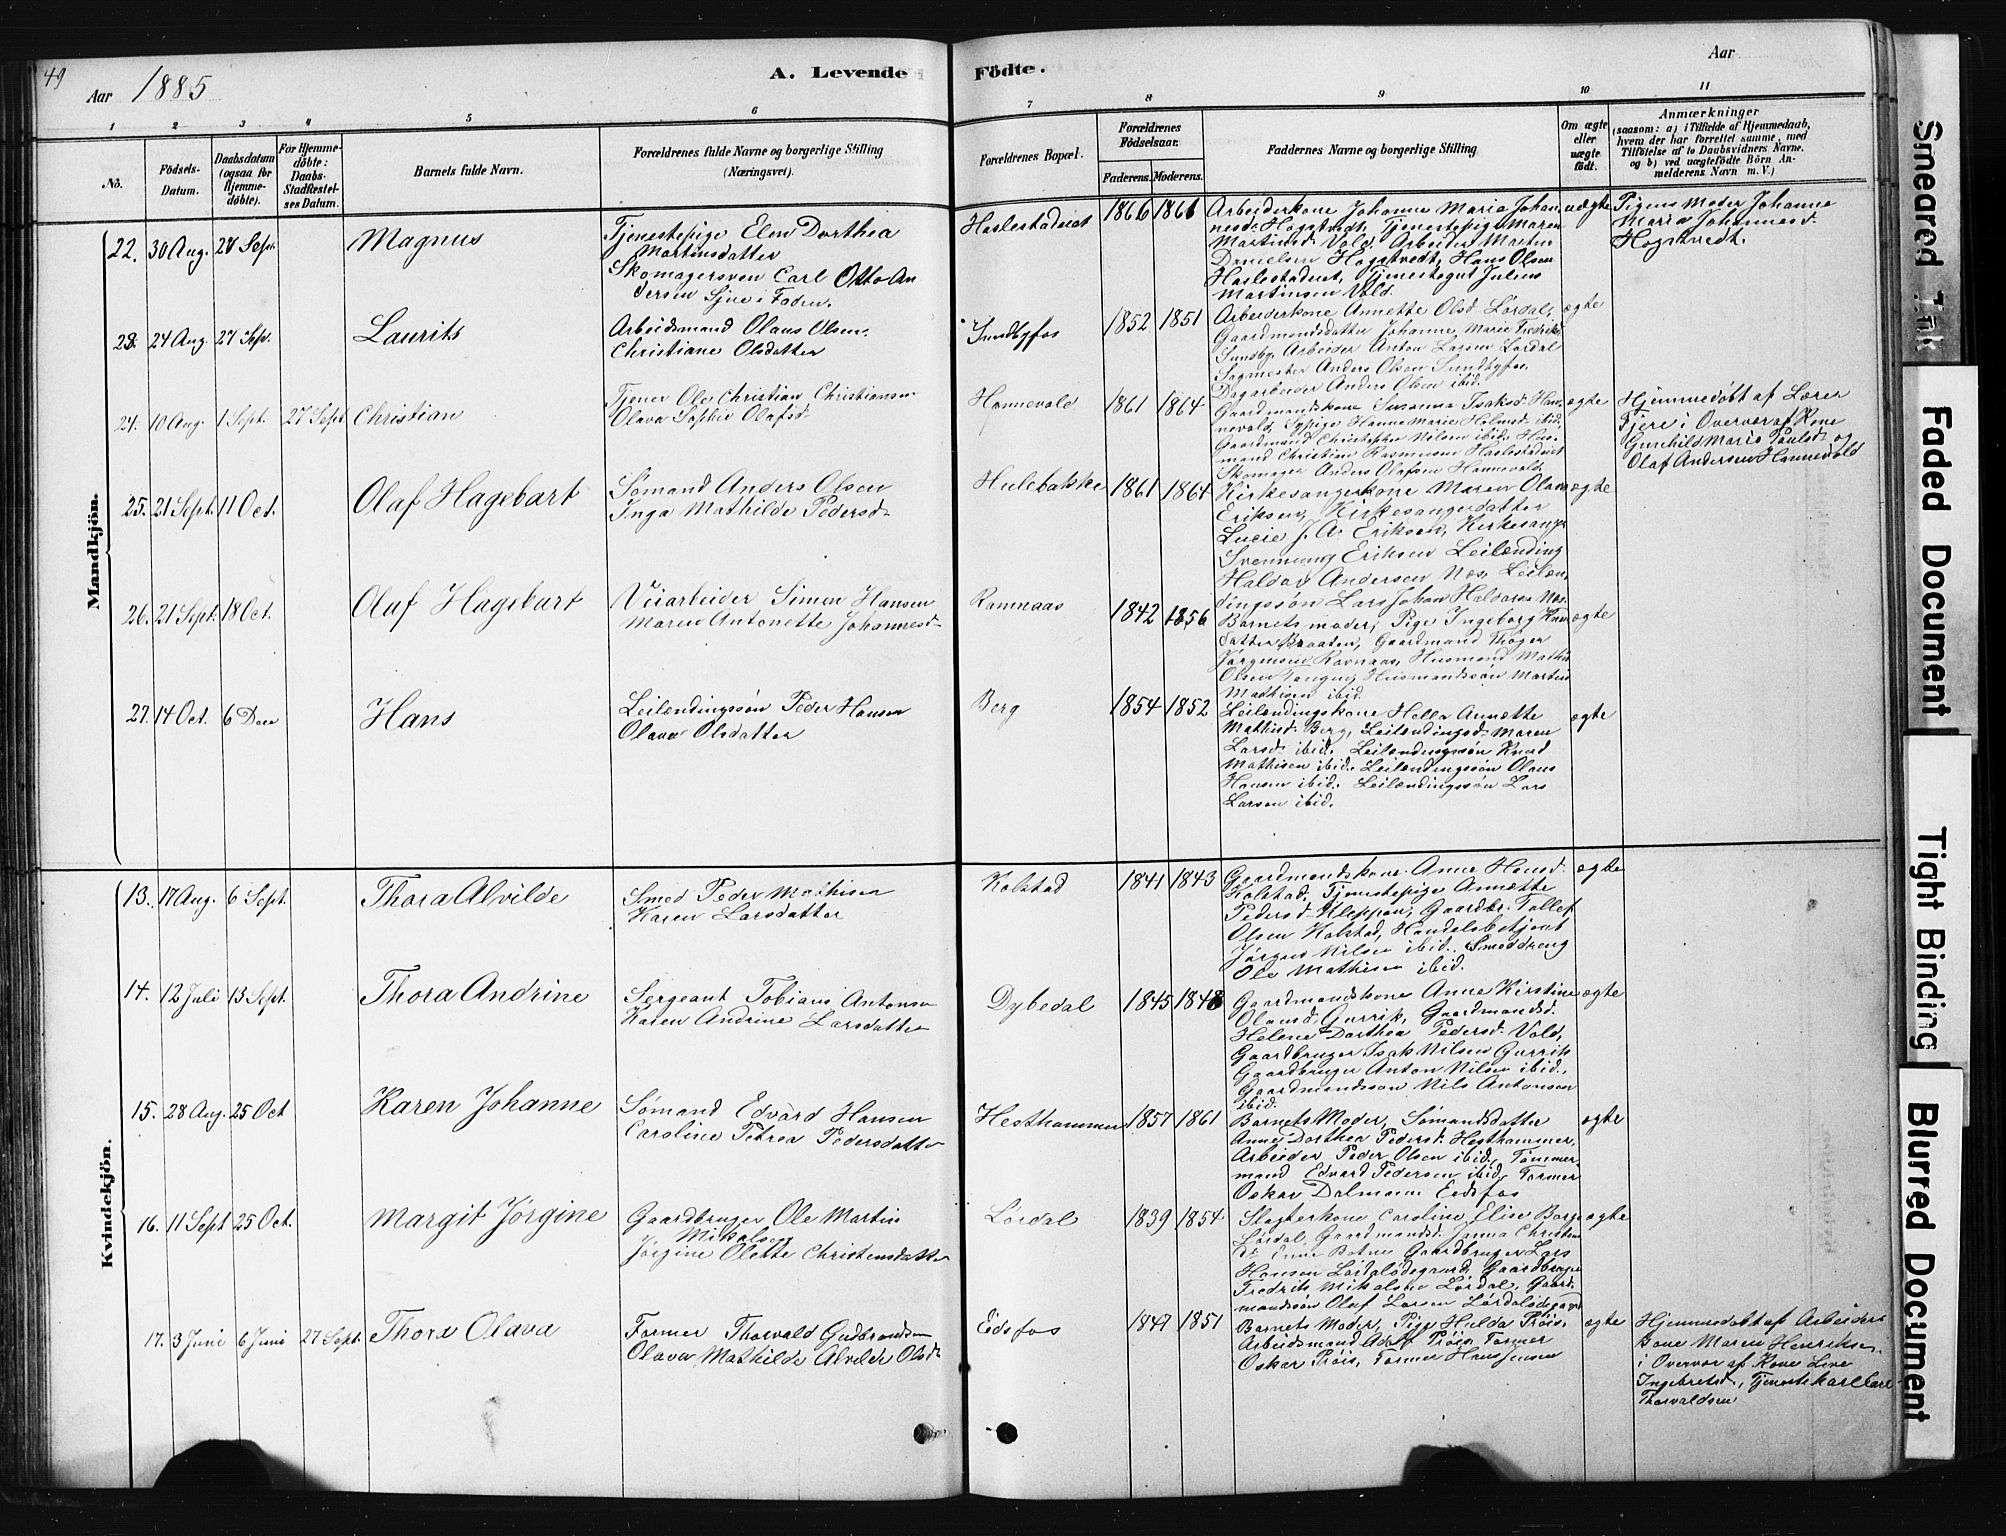 49
Aar 1885
A. Levende Födte.
Aar
1 2 3 4 5 6 7 8 9 10 11
No.
Födsels-Datum.
Daabsdatum (ogsaa for Hjemme-döbte).
For Hjemme-döbte: Daabs-Stadfæstel-ses Datum.
Barnets fulde Navn.
Forældrenes fulde Navne og borgerlige Stilling (Næringsvei).
Forældrenes Bopæl.
Forældrenes Födselsaar.
Faderens. Moderens.
Faddernes Navne og borgerlige Stilling
Om ægte eller uægte födt.
Anmærkninger
(saasom: a) i Tilfælde af Hjemmedaab,
hvem der har forrettet samme, med
Tilföielse af to Daabsvidners Navne.
og b) ved uægtefödte Börn An-
melderens Navn m. V.)
Mandkjön.
22. 30 Aug. 27 Sept. Magnus
Tjenestepige Elen Dorthea
Martinsdatter
Skomagersven Carl Otto An
dersen Fjære i Foden.
Haslestadeiet 1866 1861
Arbeiderkone Johanne Maria Johan
nesd. Hogstvedt, Tjenestepige Maren
Martinsd. Vold. Arbeider Martin
Danielsen Hogstvedt, Hans Olsen
Haslestadeiet, Tjenestegut Julius
Martinsen Vold.
uægte
Pigens Moder Johanne
Maria Johannesd.
Hogstvedt.
23. 24 Aug. 27 Sept. Laurits
Arbeidsmand Olaus Olsen.
Christiane Olsdatter
Sundbyfos 1852 1851
Arbeiderkone Annette Olsd. Lørdal,
Gaardmandsdatter Johanne Marie Fredriks
Sundby. Arbeider Anton Larsen Lørdal
Sagmester Anders Olsen Sundbyfos,
Dagarbeider Anders Olsen ibid.
ægte
24. 10 Aug. 1 Sept. 27 Sept. Christian
Tjener Ole Christian Christiansen
Olava Sophie Olafsd.
Hannevold 1861 1864
Gaardmandskone Susanna Isaksd. Han-
nevold, Sypige Hanne Marie Holmsd. ibid,
Gaardmand Christopher Nilsen ibid. Hus-
mand Christian Rasmusen Haslestadeiet
Skomager Anders Olafsen Hannevold.
ægte
Hjemmedøbt af Lærer
Fjere i Overvær af Kone
Gunhild Maria Paulsd. og
Olaf Andersen Hannevold
25. 21 Sept. 11 Oct. Olaf Hagebart
Sømand Anders Olsen
Inga Mathilde Pedersd.
Hulebakke 1861 1864
Kirkesangerkone Maren Olava
Eriksen, Kirkesangerdatter
Lucie J. A. Eriksen, Kirkesanger
Svennung Eriksen Leilænding
Haldor Andersen Næs, Leilæn,
dingssøn Lars Johan Halvorsen Næs.
ægte
26. 21 Sept. 18 Oct. Olaf Hagebart
Veiarbeider Simen Hansen
Maren Antonette Johannesd.
Ramnaas 1842 1856
Barnets moder, Pige Ingeborg Knu
datter Braaten, Gaardmand Thøger
Jørgensen Ravnaas, Husmand Mathis
Olsen Tangen, Husmandssøn Martin
Mathisen ibid.
ægte
27. 14 Oct. 6 Dec Hans
Leilændingssøn Peder Hansen
Olava Olsdatter
Berg 1854 1852
Leilændingskone Hella Annette
Mathisd. Berg, Leilændingsd. Maren
Larsd. ibid. Leilændingssøn Knud
Mathisen ibid. Leilændingssøn Olaus
Hansen ibid. Leilændingssøn Lars
Larsen ibid.
ægte
Kvindekjön.
13. 17 Aug. 6 Sept. Thora Alvilde
Smed Peder Mathisen
Karen Larsdatter
Kolstad 1841 1843
Gaardmandskone Anne Hansd.
Kolstad, Tjenestepige Annette
Pedersd. Kleppen, Gaardbr. Tollef
Olsen Kolstad, Handelsbetjent
Jørgen Nilsen ibid. Smeddreng
Ole Mathisen ibid.
ægte
14. 12 Juli 13 Sept. Thora Andrine
Sergeant Tobias Antonsen
Karen Andrine Larsdatter
Dybedal 1845 1848
Gaardmandskone Anne Kirstine
Olausd. Gurrik, Gaardmandsd.
Helene Dorthea Pedersd. Vold,
Gaardbruger Isak Nilsen Gurrik
Gaardbruger Anton Nilsen ibid.,
Gaardmandssøn Nils Antonsen
ibid.
ægte
15. 28 Aug. 25 Oct Karen Johanne
Sømand Edvard Hansen
Caroline Petrea Pedersdatter
Hesthammer 1857 1861
Barnets Moder, Sømandsdatter
Anne Dorthea Pedersd. Hesthammer,
Arbeider Peder Olsen ibid, Tømmer-
mand Edvard Pedersen ibid, Former
Oskar Dalmann Eidsfos
ægte
16. 11 Sept 25 Oct. Margit Jørgine
Gaardbruger Ole Martin
Mikalsen
Jørgine Olette Christensdatter
Lørdal 1839 1854
Slagterkone Caroline Elise Borge
Lørdal, Gaardmandsd. Janna Christen
d. Botne Gaardbruger Lars
Hansen Lørdalsødegaard, Gaardbruger
Fredrik Mikalsen Lørdal, Gaard-
mandssøn Olaf Larsen Lørdalsødegaard
ægte
17. 3 Juni 6 Juni 27 Sept. Thora Olava
Former Thorvald Gudbrandsen
Olava Mathilde Alvilde Olsd.
Eidsfos 1847 1851
Barnets Moder, Pige Hilda Prøis,
Arbeidsmand Adolf Prøis, Former
Oskar Prøis, Former Hans Jensen
ægte
Hjemmedøbt af Arbeider
kone Maren Henriksen,
i Overvær af Kone Lene
Ingebretsd., Tjenestekarl Carl
Thorvaldsen
Smeared Ink
Faded Document
Tight Binding
Blurred Document